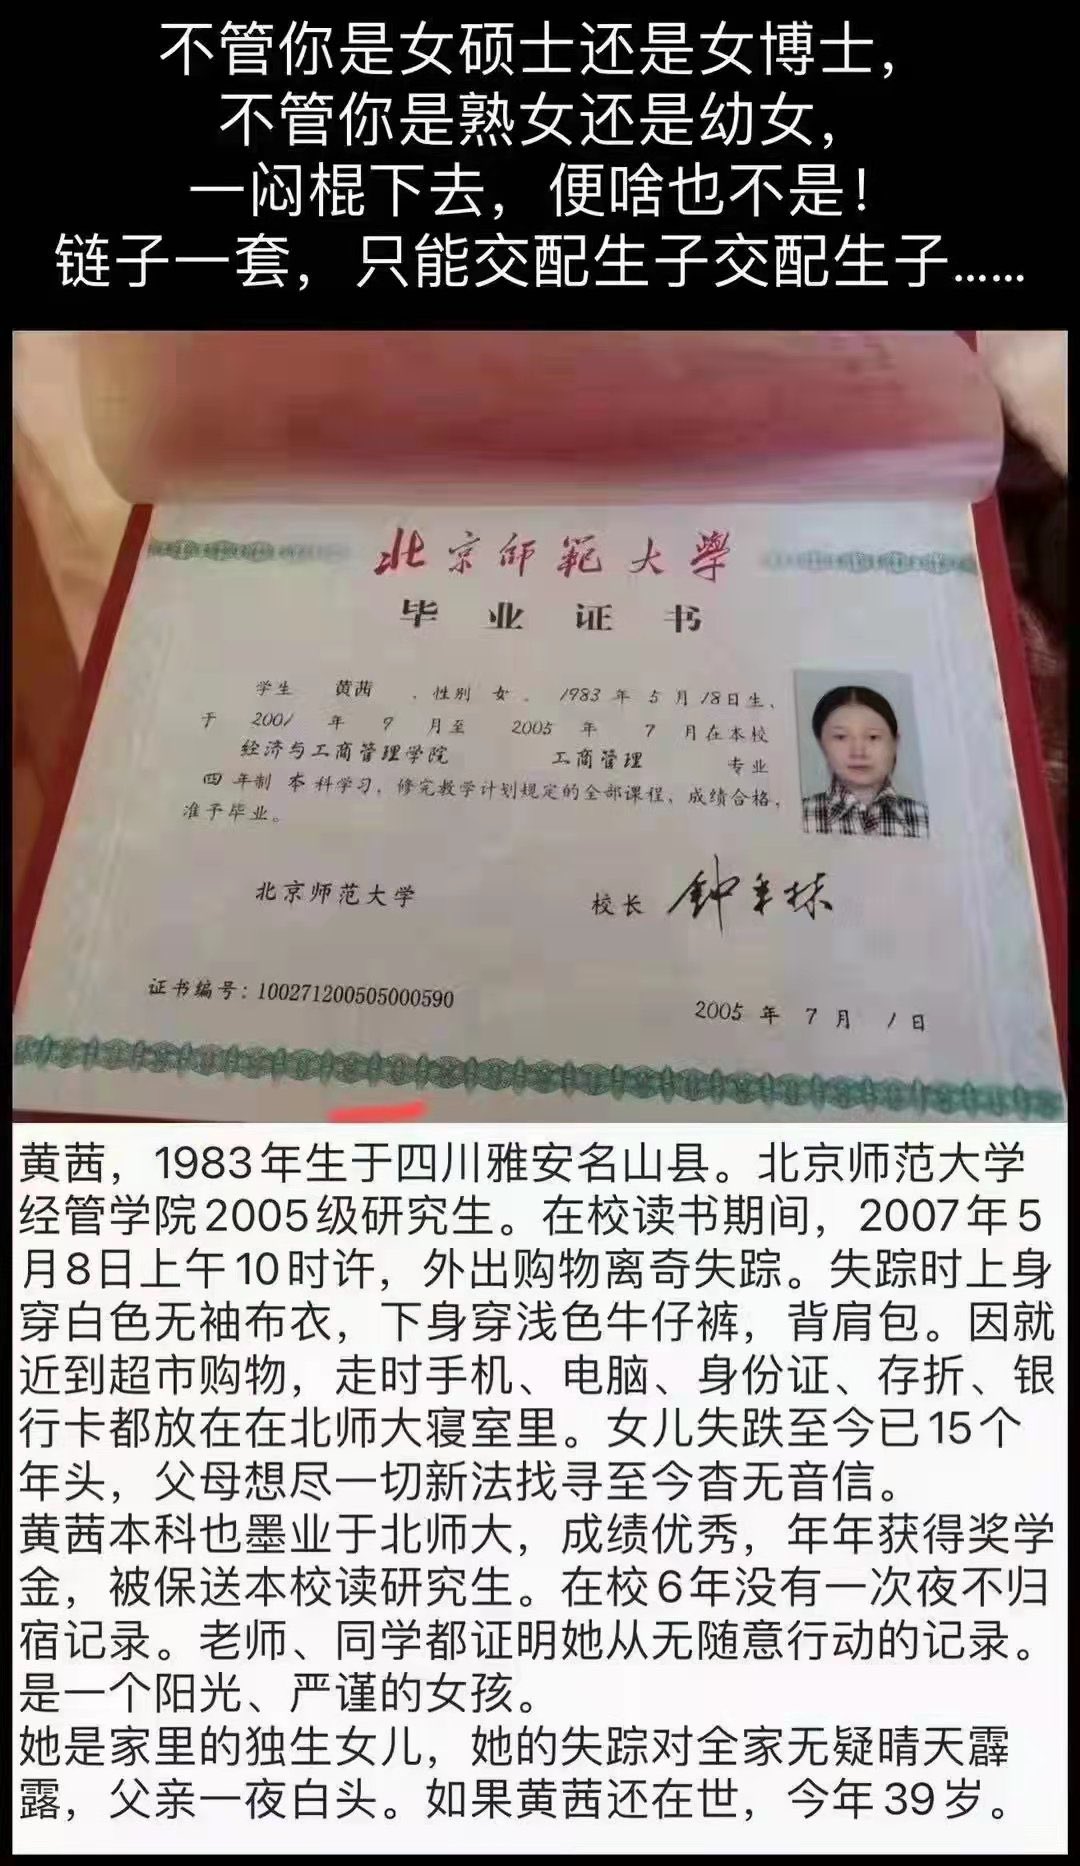 不管你是女硕士还是女博士，
不管你是熟女还是幼女，
一闷棍下去，便啥也不是！
链子一套，只能交配生子交配生子……
北京师範大學
毕业证书
学生 黄茜 ，性别 女 ， 1983 年 5 月 18日生、
于 2001 年 9 月至 2005 年 7 月在本校
经济与工商管理学院 工商管理 专业
四 年制 本 科学习，修完教学计划规定的全部课程，成绩合格，
准予毕业。
北京师范大学 校长 钟秉林
证书编号：100271200505000590
2005 年 7 月 1 日
黄茜，1983年生于四川雅安名山县。北京师范大学
经管学院2005级研究生。在校读书期间，2007年5
月8日上午10时许，外出购物离奇失踪。失踪时上身
穿白色无袖布衣，下身穿浅色牛仔裤，背肩包。因就
近到超市购物，走时手机、电脑、身份证、存折、银
行卡都放在在北师大寝室里。女儿失跌至今已15个
年头，父母想尽一切新法找寻至今杳无音信。
黄茜本科也墨业于北师大，成绩优秀，年年获得奖学
金，被保送本校读研究生。在校6年没有一次夜不归
宿记录。老师、同学都证明她从无随意行动的记录。
是一个阳光、严谨的女孩。
她是家里的独生女儿，她的失踪对全家无疑晴天霹
露，父亲一夜白头。如果黄茜还在世，今年39岁。